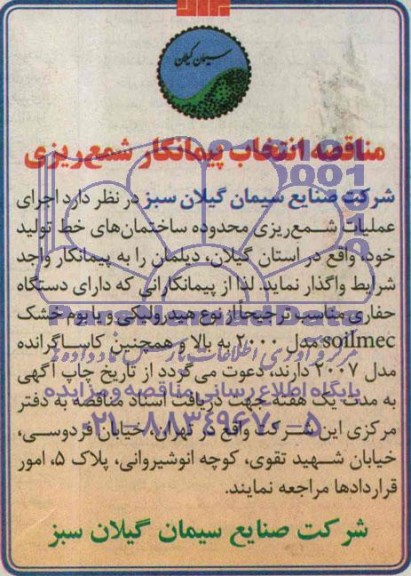 سیمان گیلان
مناقصه انتخاب پیمانکار شمع‌ریزی
شرکت صنایع سیمان گیلان سبز در نظر دارد اجرای
عملیات شمع‌ریزی محدوده ساختمان‌های خط تولید
خود، واقع در استان گیلان، دیلمان را به پیمانکار واجد
شرایط واگذار نماید. لذا از پیمانکارانی که دارای دستگاه
حفاری مناسب ترجیحاً از نوع هیدرولیکی و یا بوم خشک
soilmec مدل ۲۰۰۰ به بالا و همچنین کاساگرانده
مدل ۲۰۰۷ دارند، دعوت می‌گردد از تاریخ چاپ آگهی
به مدت یک هفته جهت دریافت اسناد مناقصه به دفتر
مرکزی این شرکت واقع در تهران، خیابان فردوسی،
خیابان شهید تقوی، کوچه انوشیروانی، پلاک ۵، امور
قراردادها مراجعه نمایند.
شرکت صنایع سیمان گیلان سبز
ParsNamadData
پایگاه اطلاع رسانی مناقصه و مزایده
۰۲۱-۸۸۳۴۹۶۷۰-۵